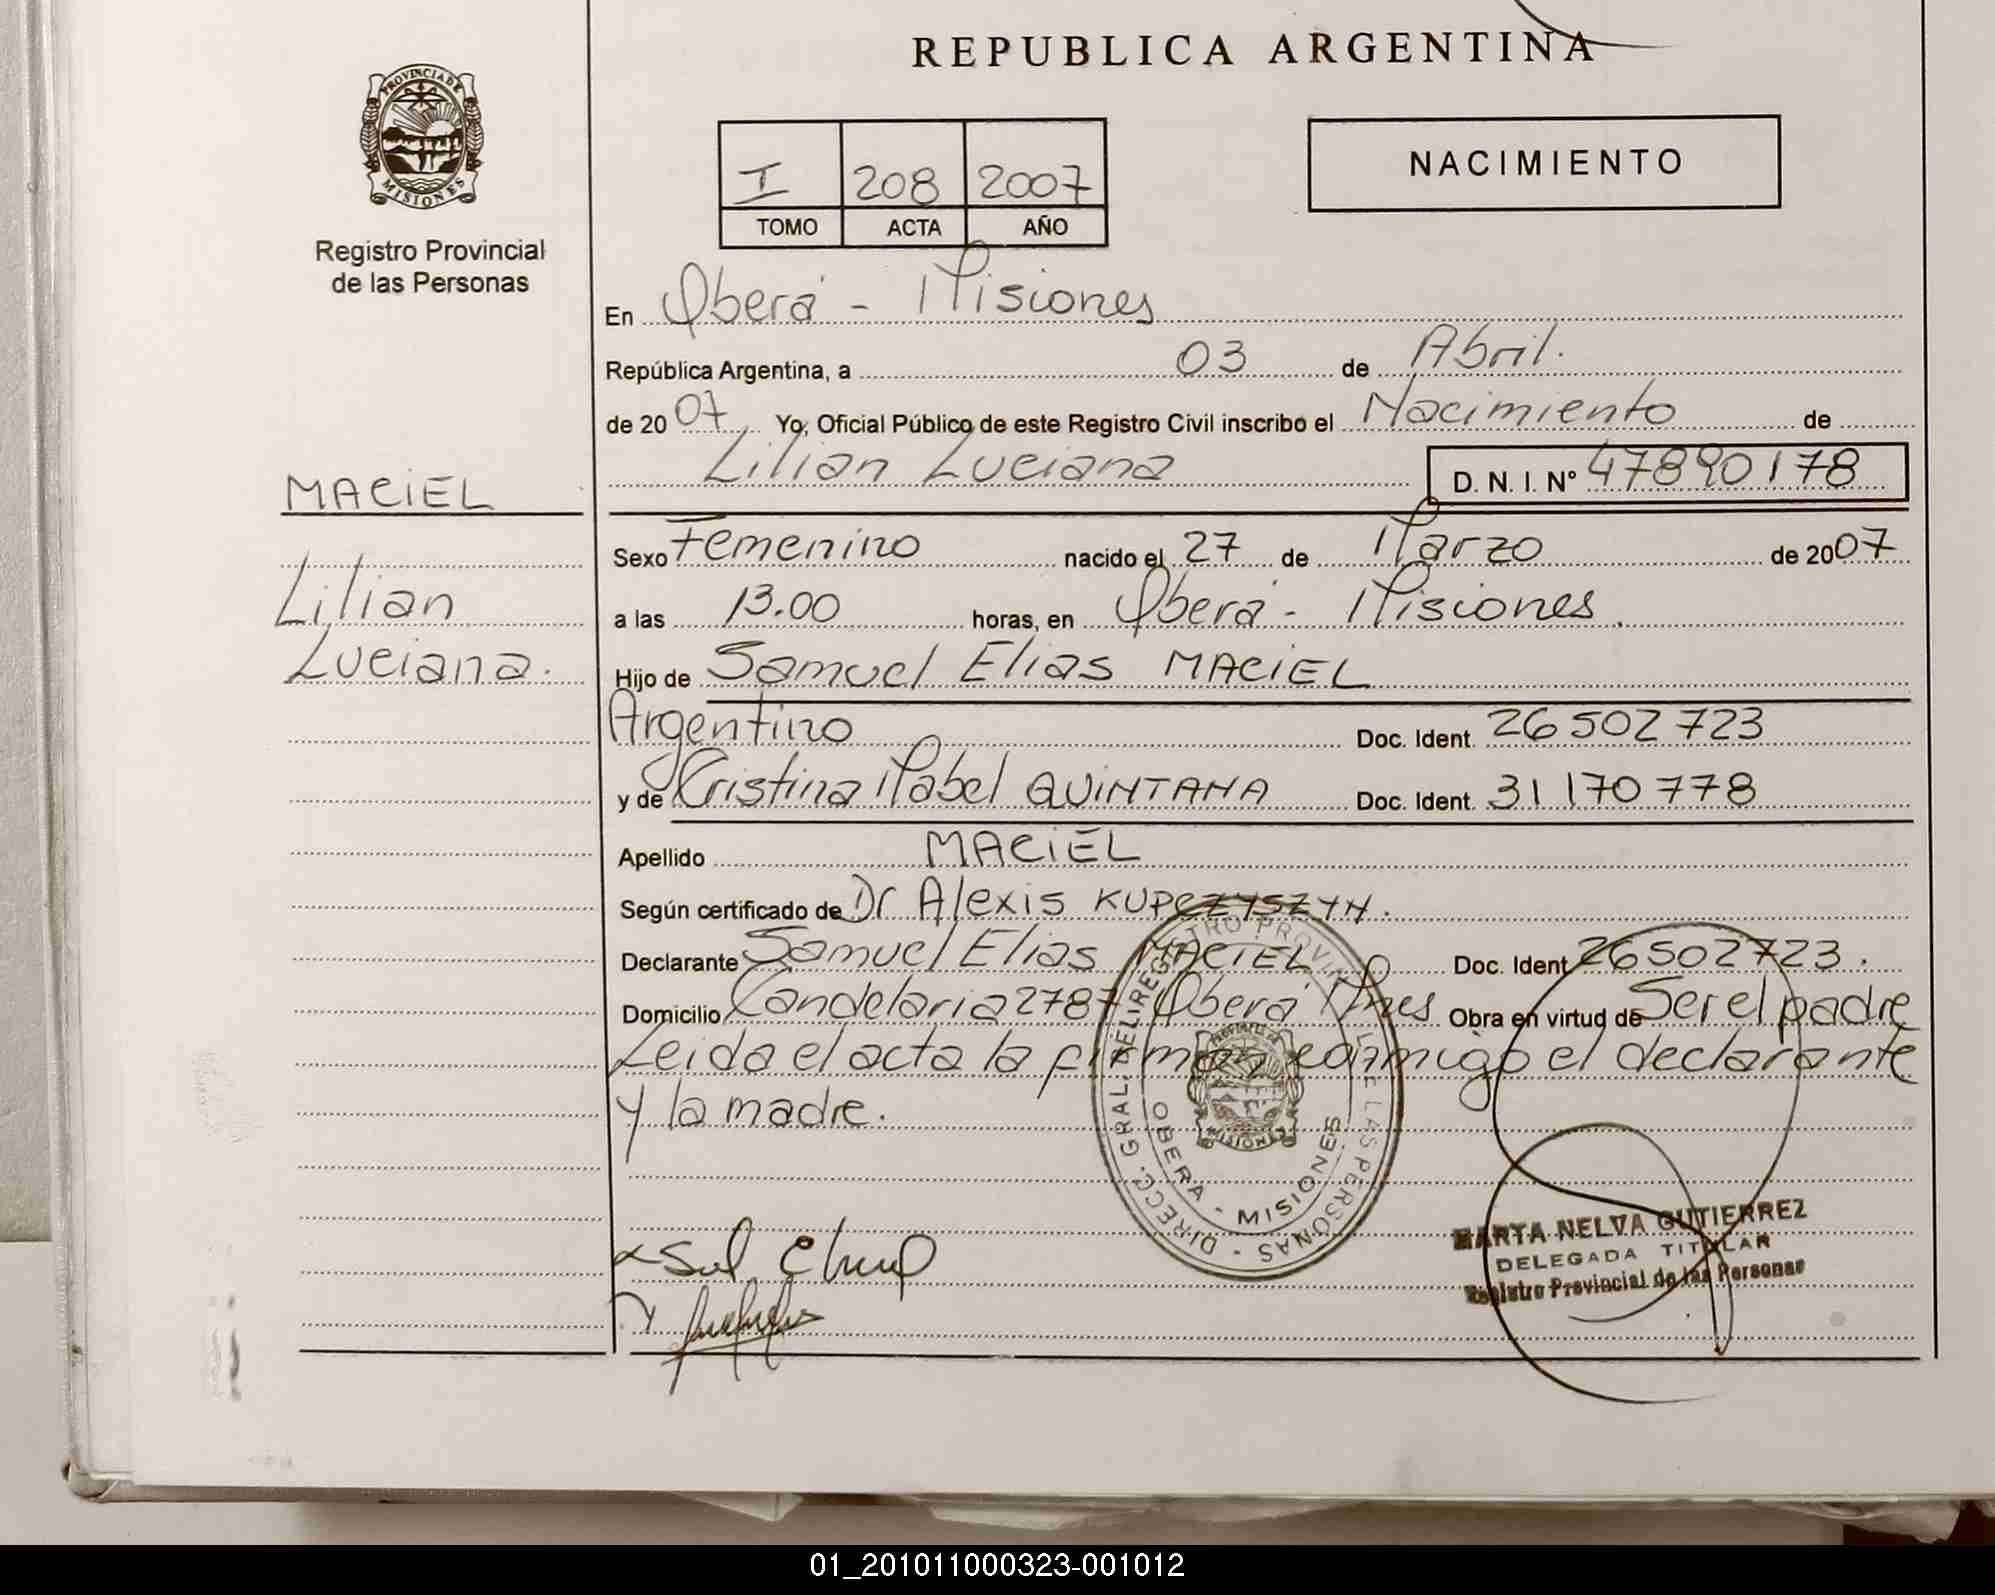 REPUBLICA ARGENTINA
PROVINCIA DE MISIONES
Registro Provincial
de las Personas
I 208 2007
TOMO ACTA AÑO
NACIMIENTO
En Oberá - Misiones
República Argentina, a 03 de Abril.
de 2007 Yo, Oficial Público de este Registro Civil inscribo el Nacimiento de
Lilian Luciana D. N. I. Nº 47890178
MACIEL
Lilian
Luciana.
Sexo Femenino nacido el 27 de Marzo de 2007
a las 13.00 horas, en Oberá - Misiones.
Hijo de Samuel Elias MACIEL
Argentino Doc. Ident. 26502723
y de Cristina Mabel QUINTANA Doc. Ident. 31170778
Apellido MACIEL
Según certificado de Dr Alexis KUPCZYSZYN.
Declarante Samuel Elias MACIEL Doc. Ident 26502723.
Domicilio Candelaria 2787 Oberá Mnes Obra en virtud de Ser el padre
Leida el acta la firman conmigo el declarante
y la madre.
DIRECC. GRAL. DEL REGISTRO PROVINCIAL DE LAS PERSONAS
OBERA - MISIONES
PROVINCIA DE MISIONES
MARTA NELVA GUTIERREZ
DELEGADA TITULAR
Registro Provincial de las Personas
01_201011000323-001012